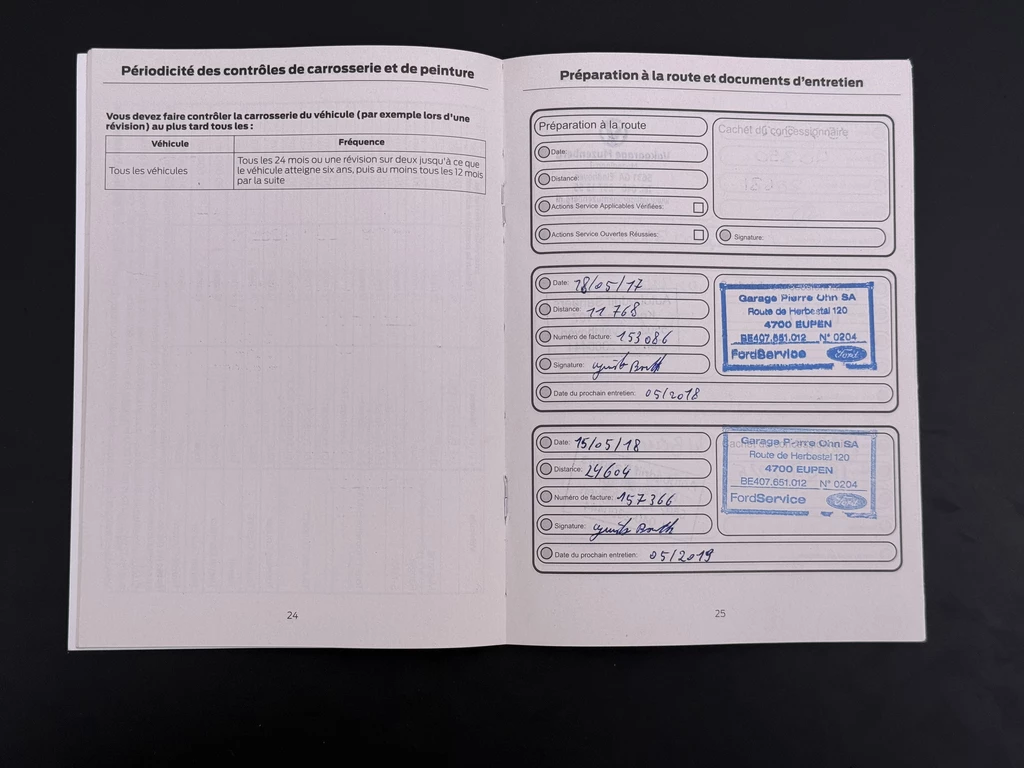 Périodicité des contrôles de carrosserie et de peinture
Vous devez faire contrôler la carrosserie du véhicule (par exemple lors d'une
révision) au plus tard tous les :
Véhicule Fréquence
Tous les véhicules
Tous les 24 mois ou une révision sur deux jusqu'à ce que
le véhicule atteigne six ans, puis au moins tous les 12 mois
par la suite
24
Préparation à la route et documents d'entretien
Préparation à la route
Cachet du concessionnaire
Date:
Distance:
Actions Service Applicables Vérifiées:
Actions Service Ouvertes Réussies:
Signature:
Date: 18/05/17
Distance: 11 768
Numéro de facture: 153086
Signature:
Date du prochain entretien: 05/2018
Garage Pierre Ohn SA
Route de Herbestal 120
4700 EUPEN
BE407.651.012 N° 0204
FordService Ford
Date: 15/05/18
Distance: 24604
Numéro de facture: 157366
Signature:
Date du prochain entretien: 05/2019
Garage Pierre Ohn SA
Route de Herbestal 120
4700 EUPEN
BE407.651.012 N° 0204
FordService Ford
25